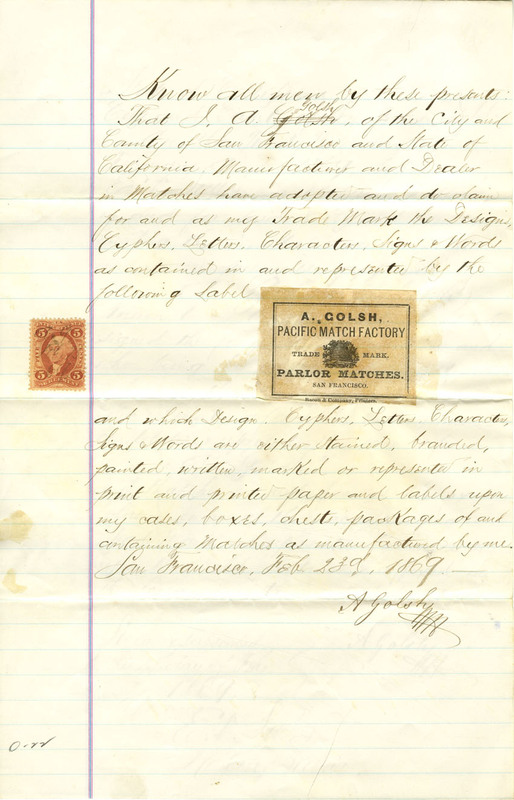 Know all men by these presents:
Golsh
That I, A. Golsh, of the City and
County of San Francisco and State of
California, Manufacturer and Dealer
in Matches have adopted and do claim
for and as my Trade Mark the Designs,
Cyphers, Letters, Characters, Signs & Words
as contained in and represented by the
following Label
A. GOLSH,
PACIFIC MATCH FACTORY
TRADE MARK.
PARLOR MATCHES.
SAN FRANCISCO.
& Company, Printers.
5 5
5 5
and which Design, Cyphers, Letters, Characters,
Signs & Words are either stained, branded,
painted, written, marked or represented in
print and printed paper and labels upon
my cases, boxes, chests, packages of and
containing Matches as manufactured by me.
San Francisco, Feb 23d, 1869
A Golsh